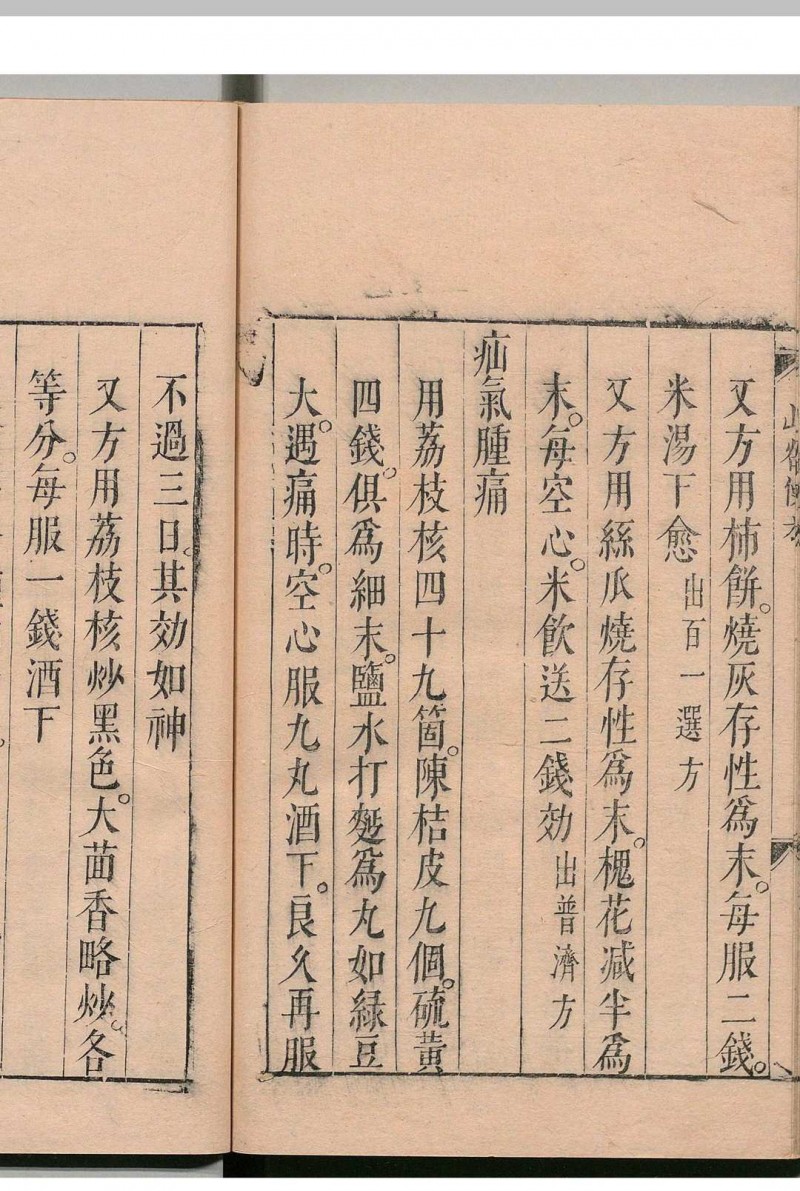 又方用柿餅。燒灰存性爲末。每服二錢。
米湯下愈 出百一選方
又方用絲瓜燒存性爲末。槐花減半爲
末。每空心。米飲送二錢効 出普濟方
疝氣腫痛
用荔枝核四十九箇。陳桔皮九個。硫黃
四錢。俱爲細末。鹽水打麪爲丸如緑豆
大。遇痛時。空心服九丸酒下。良久再服
不過三日。其効如神
又方用荔枝核炒黑色。大茴香略炒。各
等分。每服一錢酒下